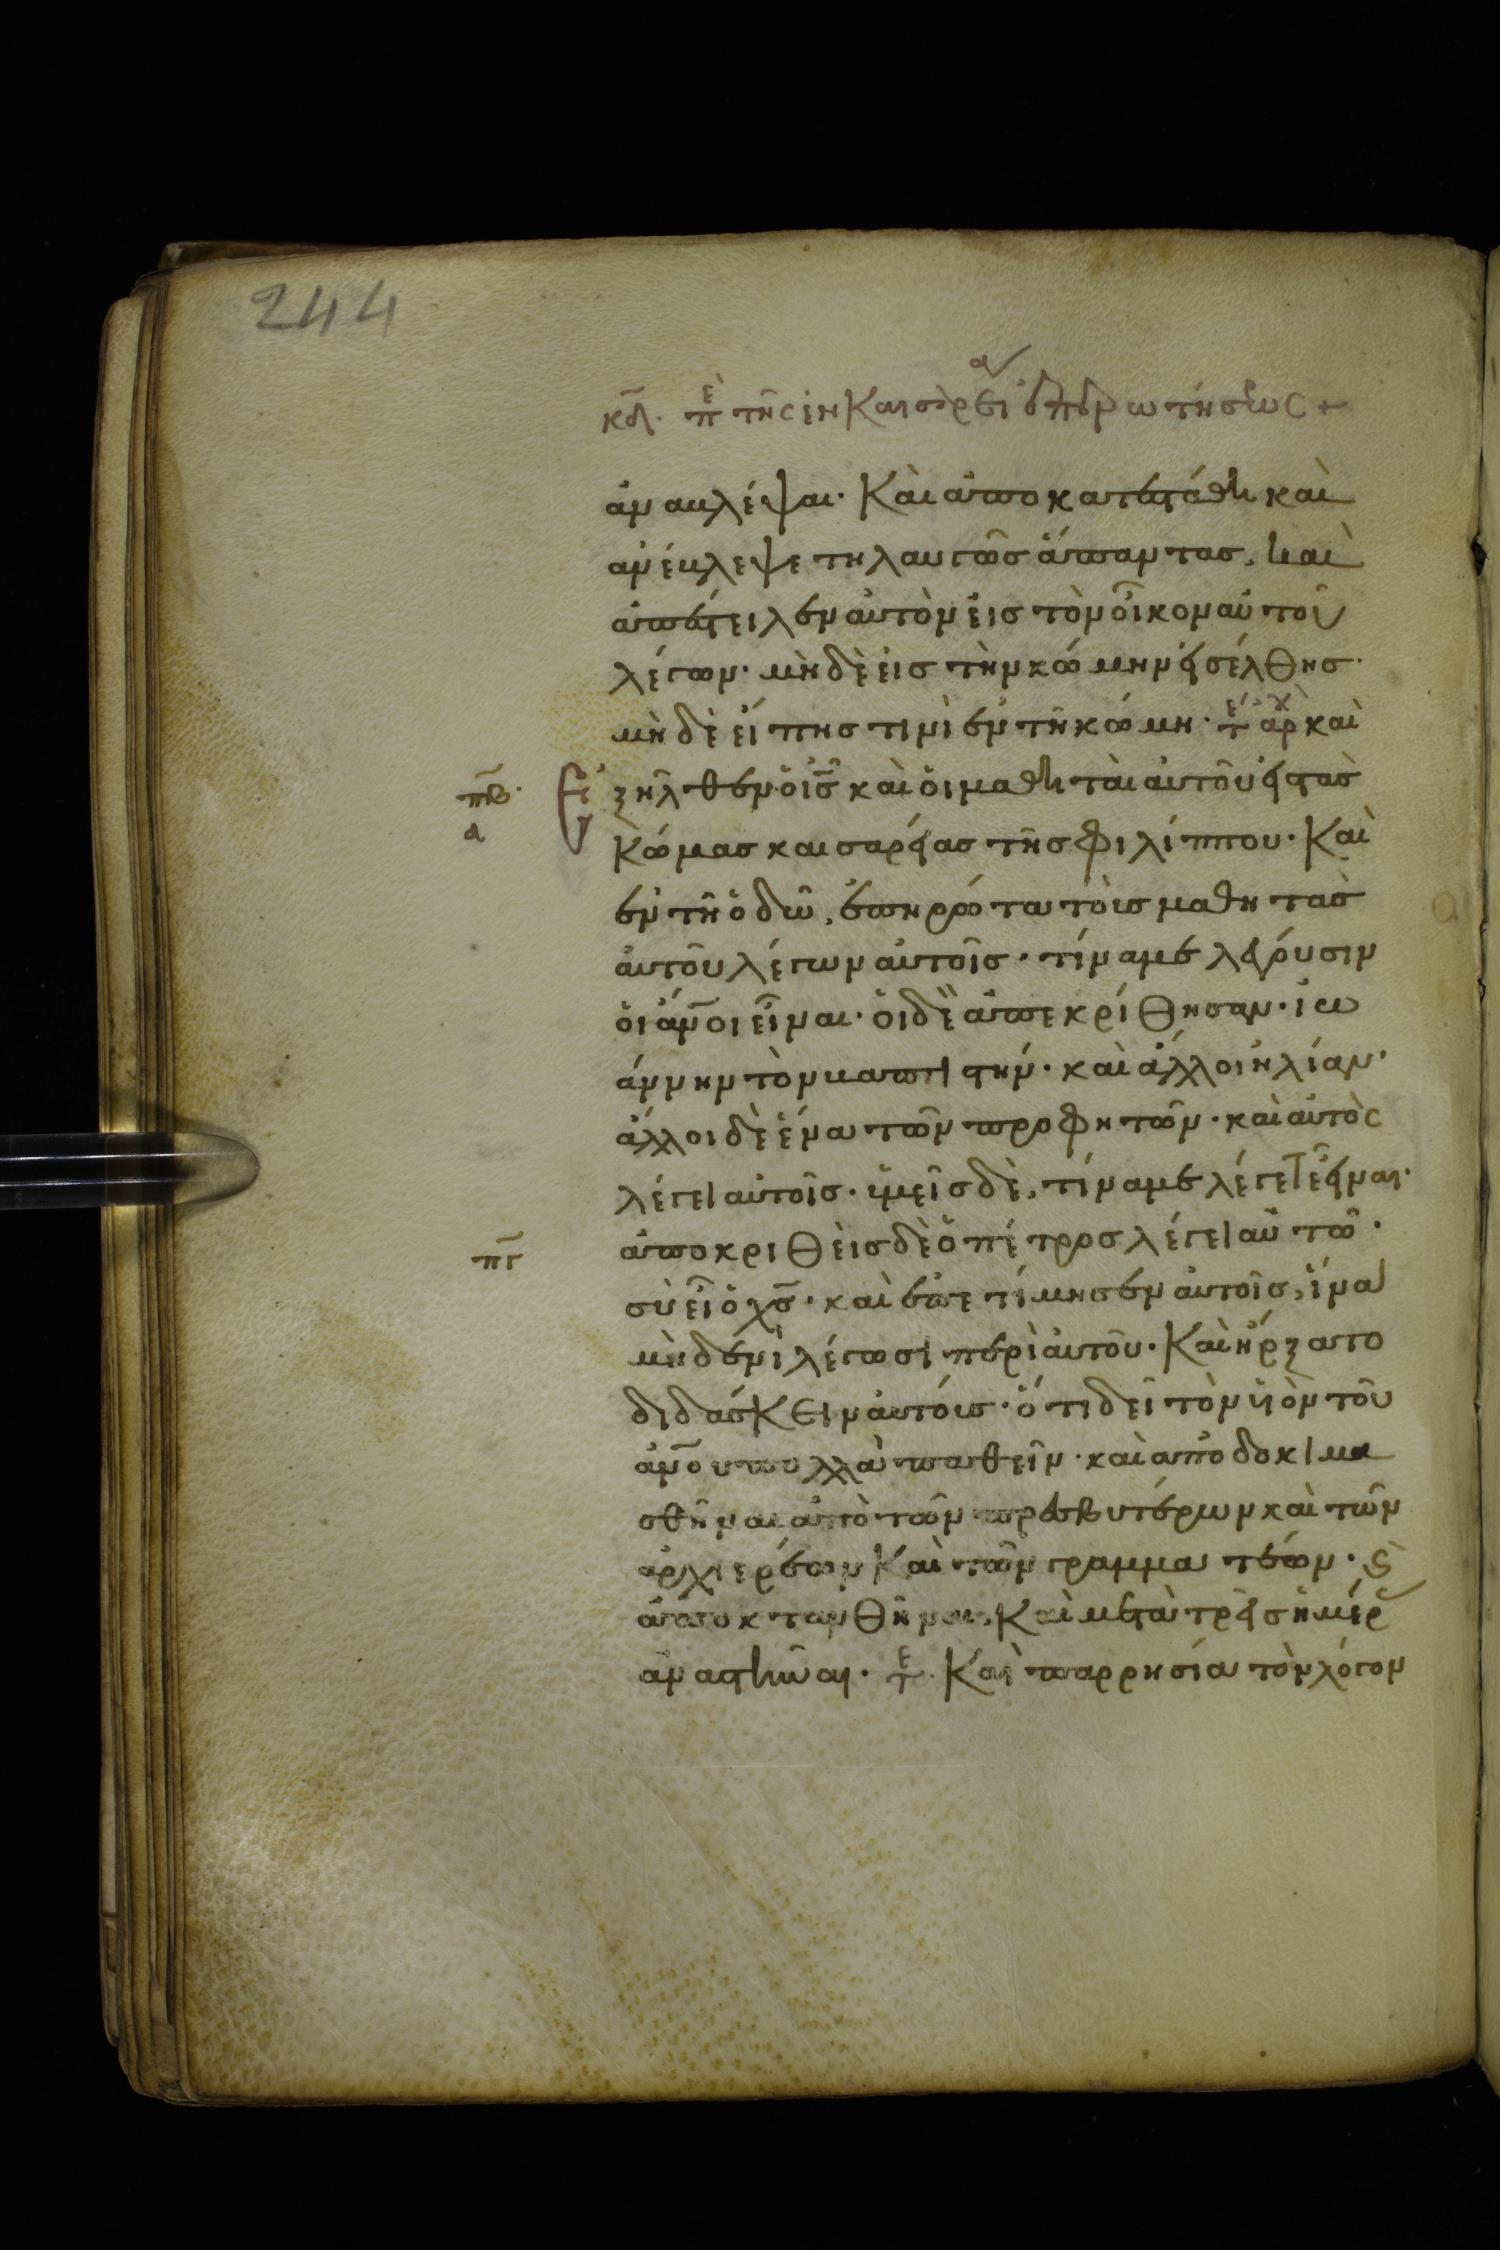 244
κδ. π̅ὲ τῆς ἐν Καισαρεί ἐπερωτήσεως +
ἀναβλέψαι· Καὶ ἀποκατεστάθη καὶ
ἀνέβλεψε τηλαυγῶς ἅπαντας, καὶ
ἀπέστειλεν αὐτὸν εἰς τὸν οἶκον αὐτοῦ
λέγων· μὴ δὲ εἰς τὴν κώμην εἰσέλθης·
μὴ δὲ εἴπης τινὶ ἐν τῆ κώμη· τε αρχ καὶ
πβ
α
Ἐξῆλθεν ὁ ις̅ καὶ οἱ μαθηταὶ αὐτοῦ εἰς τὰς
Κώμας καισαρείας τῆς φιλίππου· Καὶ
ἐν τῆ ὁδῶ, ἐπηρώτα τοὺς μαθητὰς
αὐτοῦ λέγων αὐτοῖς· τίνα με λέγουσιν
οἱ ἄνο̅ι εἶναι· οἱ δὲ ἀπεκρίθησαν· ἰω
άννην τὸν βαπτιστήν· καὶ ἄλλοι ἠλίαν·
ἄλλοι δὲ ἕνα τῶν προφητῶν· καὶ αὐτὸς
λέγει αὐτοῖς· ὑμεῖς δὲ, τίνα με λέγετε εἶναι·
πγ
ἀποκριθεὶς δὲ ὁ πέτρος λέγει αὐτῶ·
σὺ εἶ ὁ χς̅· καὶ ἐπετίμησεν αὐτοῖς, ἵνα
μὴδενὶ λέγωσι περὶ αὐτοῦ· Καὶ ἤρξατο
διδάσκειν αὐτούς· ὅτι δεῖ τὸν υἱὸν τοῦ
ἀνο̅υ πολλὰ παθεῖν· καὶ αποδοκιμα
σθῆναι ἀπὸ τῶν πρεσβυτέρων καὶ τῶν
ἀρχιερέων Καὶ τῶν γραμματέων· ϗ
ἀποκτανθῆναι, Καὶ μετὰ τρεῖς ἡμέρ
ἀναστῆναι· τε· Καὶ παρρησία τὸν λόγον